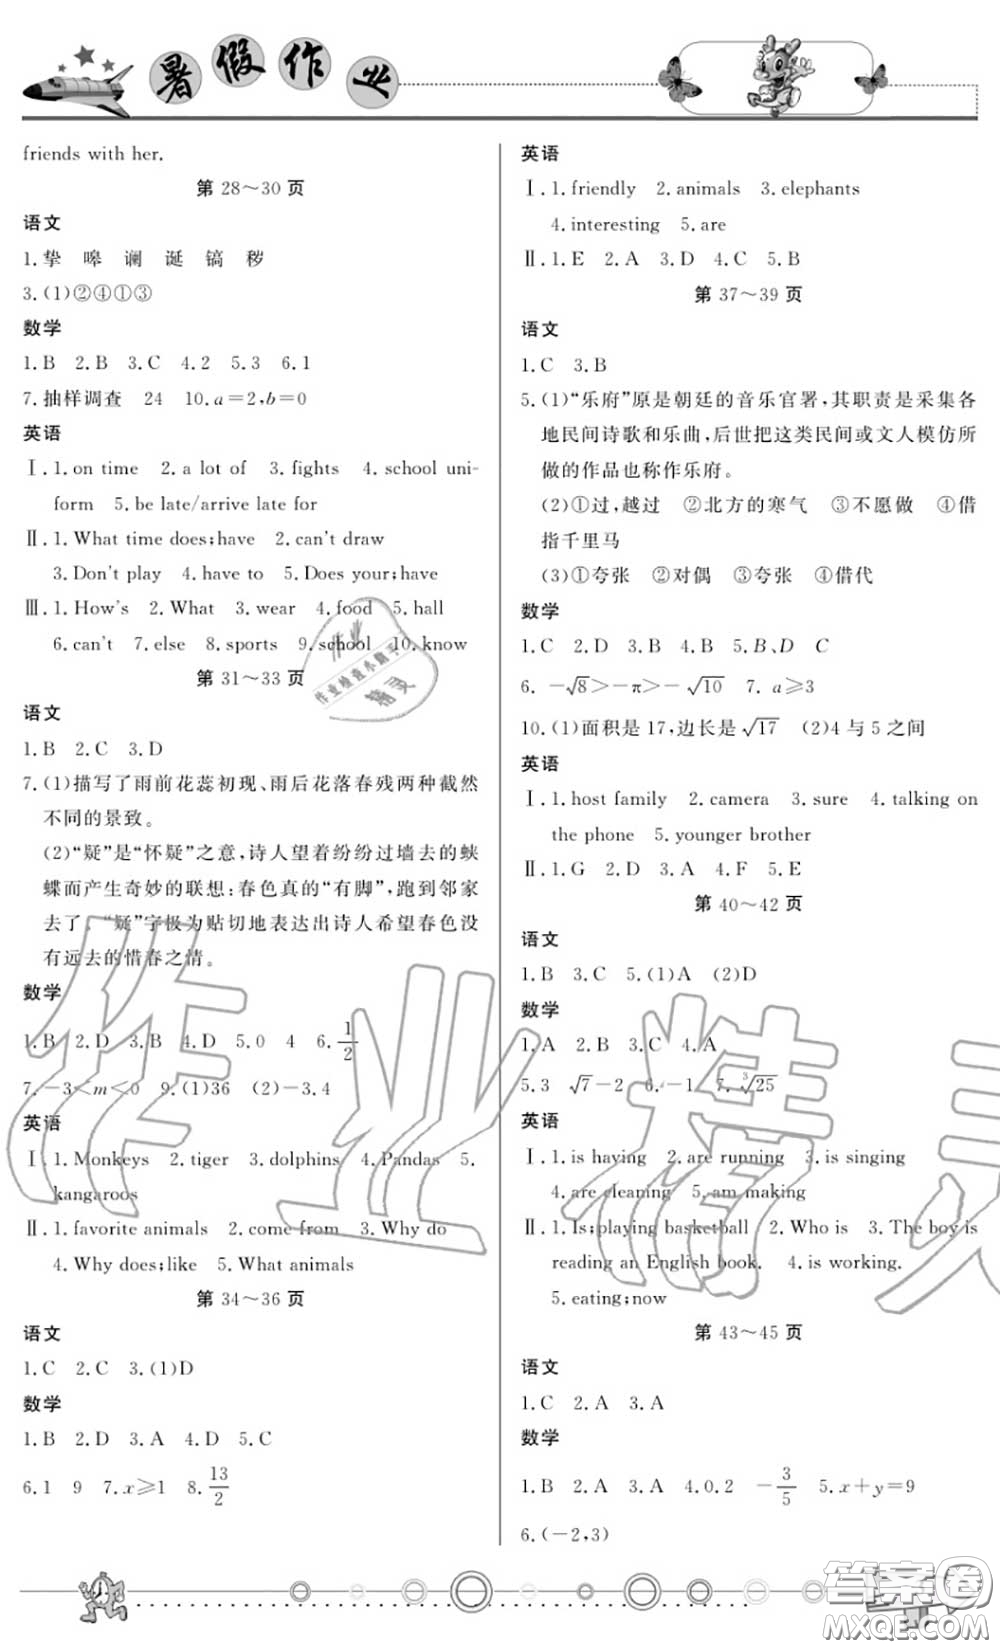 暑假作业
friends with her.
第 28～30 页
语文
1. 挚 嗥 谰 诞 镐 秽
3. (1)②④①③
数学
1. B 2. B 3. C 4. 2 5. 3 6. 1
7. 抽样调查 24 10. a＝2, b＝0
英语
Ⅰ. 1. on time 2. a lot of 3. fights 4. school uni-
form 5. be late/arrive late for
Ⅱ. 1. What time does; have 2. can't draw
3. Don't play 4. have to 5. Does your; have
Ⅲ. 1. How's 2. What 3. wear 4. food 5. hall
6. can't 7. else 8. sports 9. school 10. know
第 31～33 页
语文
1. B 2. C 3. D
7. (1)描写了雨前花蕊初现、雨后花落春残两种截然
不同的景致。
(2)“疑”是“怀疑”之意，诗人望着纷纷过墙去的蛱
蝶而产生奇妙的联想：春色真的“有脚”，跑到邻家
去了。“疑”字极为贴切地表达出诗人希望春色没
有远去的惜春之情。
数学
1. B 2. D 3. B 4. D 5. 0 4 6. 1/2
7. －3＜m＜0 9. (1)36 (2)－3, 4
英语
Ⅰ. 1. Monkeys 2. tiger 3. dolphins 4. Pandas 5.
kangaroos
Ⅱ. 1. favorite animals 2. come from 3. Why do
4. Why does; like 5. What animals
第 34～36 页
语文
1. C 2. C 3. (1)D
数学
1. B 2. D 3. A 4. D 5. C
6. 1 9 7. x≥1 8. 13/2
英语
Ⅰ. 1. friendly 2. animals 3. elephants
4. interesting 5. are
Ⅱ. 1. E 2. A 3. D 4. C 5. B
第 37～39 页
语文
1. C 3. B
5. (1)“乐府”原是朝廷的音乐官署，其职责是采集各
地民间诗歌和乐曲，后世把这类民间或文人模仿所
做的作品也称作乐府。
(2)①过，越过 ②北方的寒气 ③不愿做 ④借
指千里马
(3)①夸张 ②对偶 ③夸张 ④借代
数学
1. C 2. D 3. B 4. B 5. B、D C
6. －√8＞－π＞－√10 7. a≥3
10. (1)面积是 17，边长是 √17 (2)4 与 5 之间
英语
Ⅰ. 1. host family 2. camera 3. sure 4. talking on
the phone 5. younger brother
Ⅱ. 1. G 2. D 3. A 4. F 5. E
第 40～42 页
语文
1. B 3. C 5. (1)A (2)D
数学
1. A 2. B 3. C 4. A
5. 3 √7－2 6. －1 7. ∛25
英语
Ⅰ. 1. is having 2. are running 3. is singing
4. are cleaning 5. am making
Ⅱ. 1. Is; playing basketball 2. Who is 3. The boy is
reading an English book. 4. is working.
5. eating; now
第 43～45 页
语文
1. C 2. A 3. A
数学
1. B 2. A 3. A 4. 0. 2 －3/5 5. x＋y＝9
6. (－2, 3)
作业精灵
作业检查小助手
精灵
答案圈
MXQE.COM